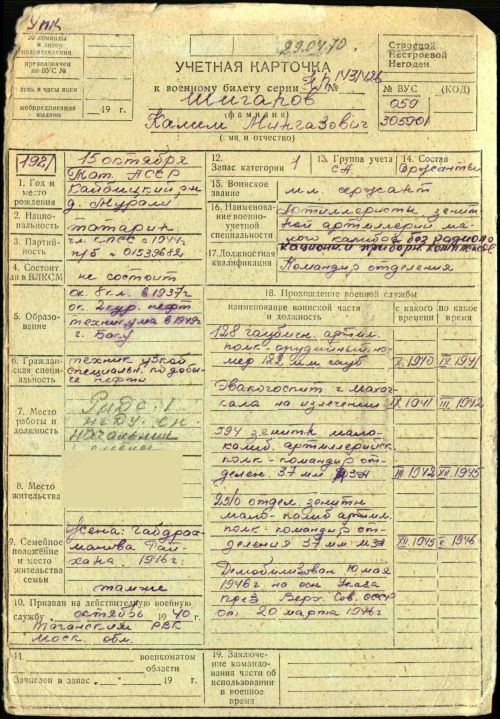 УПК
№ команды и литер подразделения
предназначен по ВУС №
день и часы явки
мобпредписание выдано „ “ 19 г.
29.04.70
УЧЕТНАЯ КАРТОЧКА
к военному билету серии №
Шигапов
(фамилия)
Калим Мингазович
(имя и отчество)
Строевой
Нестроевой
Негоден
№ ВУС (КОД)
059
1921 15 октября
Тат. АССР
Кайбицкий р-н
д. Мурали
1. Год и место рождения
2. Национальность
татарин
3. Партийность
чл. КПСС с 1944г
п/б № 01539682
4. Состоит ли в ВЛКСМ
не состоит
5. Образование
ок. 8 кл. в 1937г
ок. 2 кур. нефт
техникума в 1949г
г. Баку
6. Гражданская специальность
техник узкой
специальн. по добыче нефти
7. Место работы и должность
Начальник
8. Место жительства
9. Семейное положение и место жительства семьи
Жена: Габдрахманова
1916г.
там же
10. Призван на действительную военную службу
октябрь 1940г
Таганским РВК
Моск. обл.
11. военкоматом
области
Зачислен в запас „ “ 19 г.
12. Запас категории 1
13. Группа учета СА
14. Состав Сержанты
15. Воинское звание
мл. сержант
16. Наименование военно-учетной специальности
Артиллеристы зенитной артиллерии малого калибра без радиолокационных приборн. комплексов
17. Должностная квалификация
Командир отделения
18. Прохождение военной службы
наименование воинской части и должность
с какого времени
по какое время
128 гаубичн. артил.
полк- орудийный номер 122 мм гауб. X. 1940 IX 1941
Эвакогоспит. г. Махачкала на излечении IX 1941 III 1942
594 зенитн мало-
калиб. артиллерийск.
полк- командир отделен. 37 мм III 1942 XII 1945
отдел. зенитн
мало- калиб артил.
полк- командир отделения 37 мм XII 1945 V 1946
Демобилизован 10 мая
1946г на осн Указа
през Верх. Сов. СССР
от. 20 марта 1946г
19. Заключение командования части об использовании в военное время